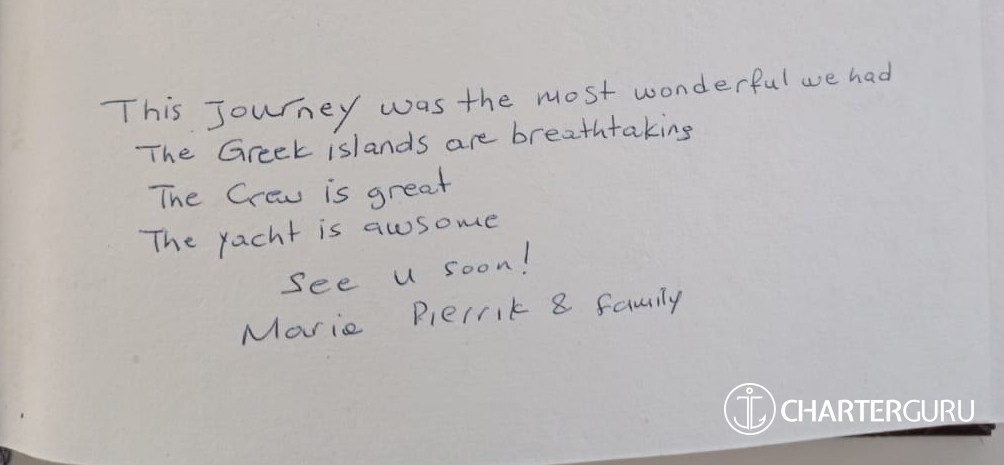 This Journey was the most wonderful we had
The Greek islands are breathtaking
The Crew is great
The yacht is awsome
See u soon!
Marie Pierrik & family
CHARTERGURU